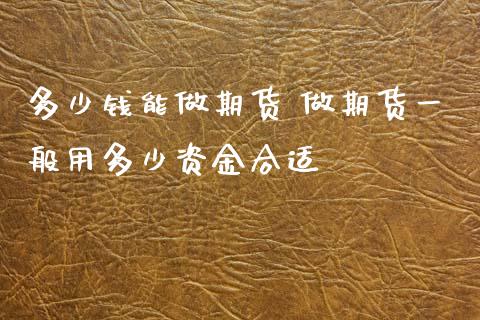 多少钱能做期货 做期货一
般用多少资金合适